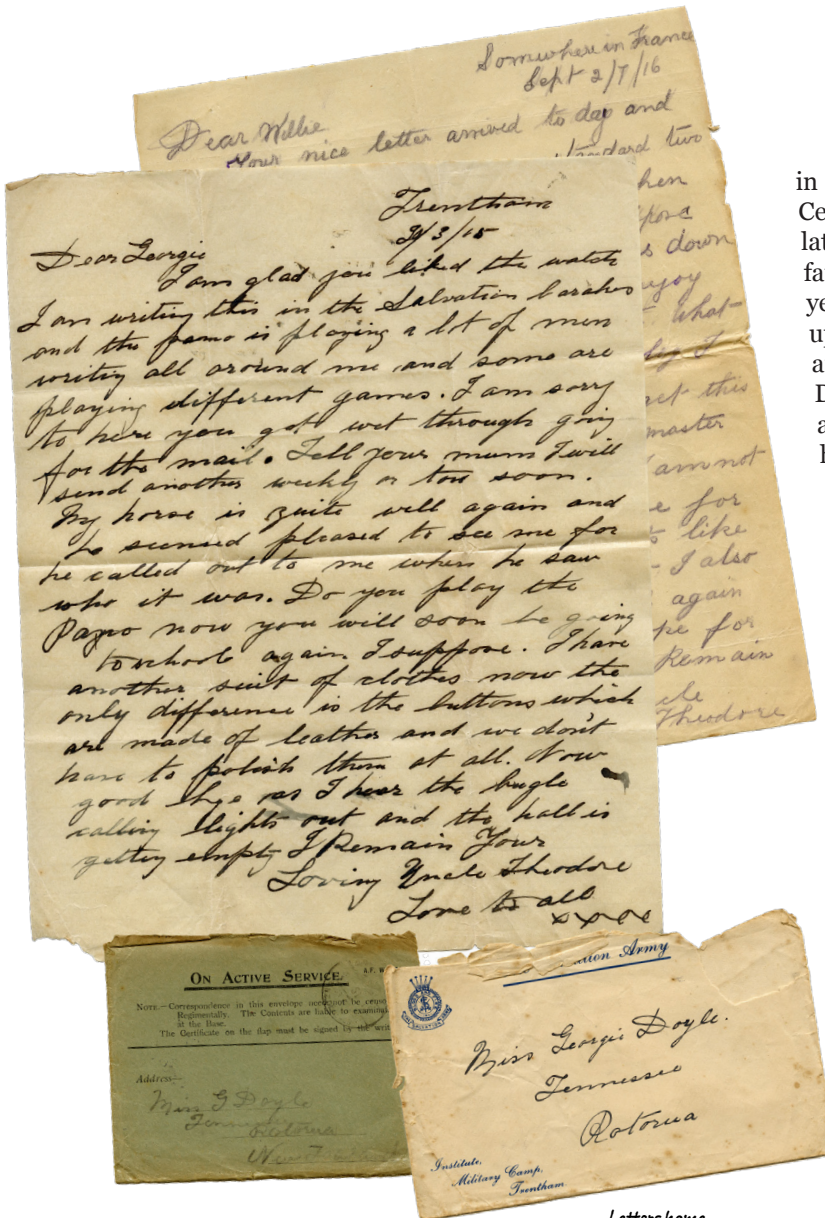 Somwhere in France
Sept 2/7/16
Dear Willie
Your nice letter arrived to day and
standard two
hen
s down
njoy
what
I
get this
master
I am not
e for
like
I also
again
for
Remain
Theodore
Trentham
/3/15
Dear Georgie
I am glad you liked the watch
I am writing this in the Salvation barakes
and the pamo is playing a lot of men
writig all around me and some are
playing different games. I am sorry
to here you got wet through going
for the mail. Tell your mum I will
send another weekly or tow soon.
My horse is quite well again and
he seemed pleased to see me for
he called out to me when he saw
who it was. Do you play the
now you will soon be going
to school again I suppose. I have
another suit of clothes now the
only difference is the buttons which
are made of leather and we don't
have to polish them at all. Now
good bye as I hear the bugle
calling lights out and the hall is
getting empty I Remain Your
Loving Uncle Theodore
Love to all
in
Ce
lat
fa
ye
up
a
D
a
h
ON ACTIVE SERVICE.
A.F. W
NOTE.—Correspondence in this envelope need not be censo
Regimentally. The Contents are liable to examinat
at the Base.
The Certificate on the flap must be signed by the writ
Address—
Miss G Doyle
Rotorua
ation Army
Miss Georgie Doyle.
Tennessee
Rotorua
Institute,
Military Camp,
Trentham.
Letters home